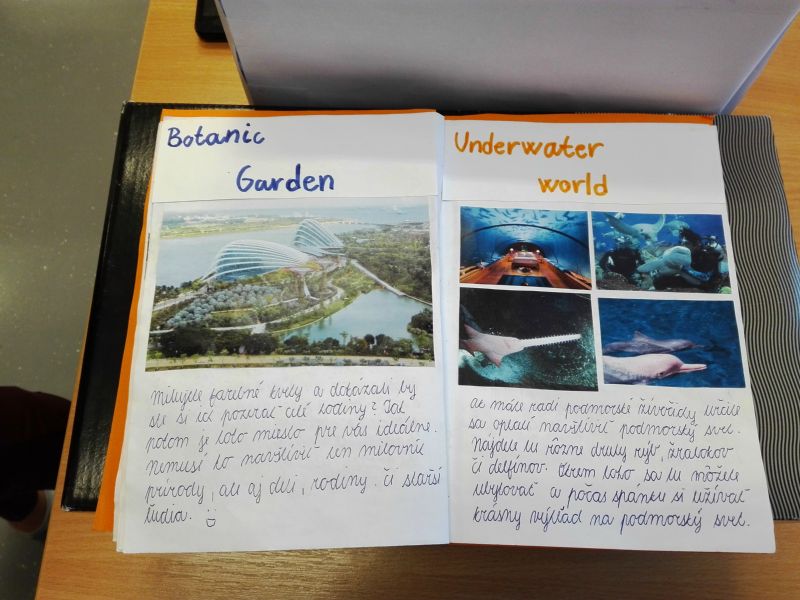 Botanic
Garden
Milujete farebné kvety a dokázali by
ste si ich pozerať celé hodiny? Tak
potom je toto miesto pre vás ideálne.
Nemusí to navštíviť len milovník
prírody, ale aj deti, rodiny či starší
ľudia.
Underwater
world
Ak máte radi podmorské živočíchy určite
sa oplatí navštíviť podmorský svet.
Nájdete tu rôzne druhy rýb, žralokov
či delfínov. Okrem toho sa tu môžete
ubytovať a počas spánku si užívať
krásny výhľad na podmorský svet.